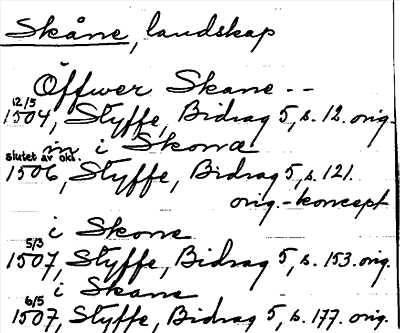 Skåne, landskap
Öffwer Skane --
12/5
1504, Styffe, Bidrag 5, s. 12. orig.
in i Skonæ
slutet av okt.
1506, Styffe, Bidrag 5, s. 121.
orig. - koncept
i Skone
5/3
1507, Styffe, Bidrag 5, s. 153. orig.
i Skane
6/5
1507, Styffe, Bidrag 5, s. 177. orig.